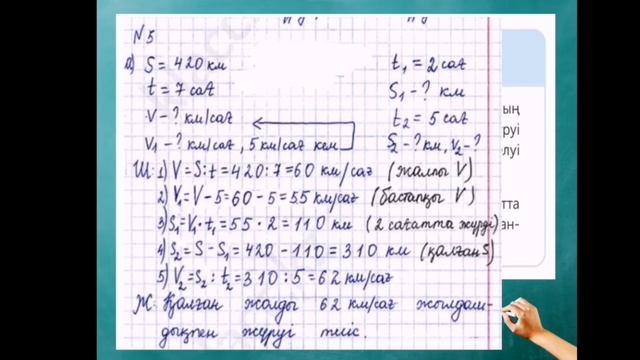 N5
а) S = 420 км
t₁ = 2 сағ
t = 7 сағ
S₁ - ? км
V - ? км/сағ
t₂ = 5 сағ
V₁ - ? км/сағ, 5 км/сағ кем
S₂ - ? км, V₂ - ?
Ш: 1) V = S : t = 420 : 7 = 60 км/сағ (жалпы V)
2) V₁ = V - 5 = 60 - 5 = 55 км/сағ (бастапқы V)
3) S₁ = V₁ · t₁ = 55 · 2 = 110 км (2 сағатта жүрді)
4) S₂ = S - S₁ = 420 - 110 = 310 км (қалған S)
5) V₂ = S₂ : t₂ = 310 : 5 = 62 км/сағ
Ж: Қалған жолды 62 км/сағ жылдам-
дықпен жүруі тиіс.
ың
руі
луі
тта
ан-